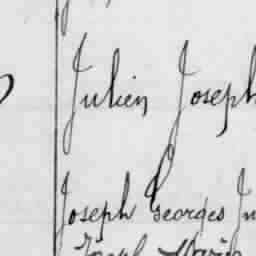 Julien Joseph
Joseph Georges Ju
Joseph Marie